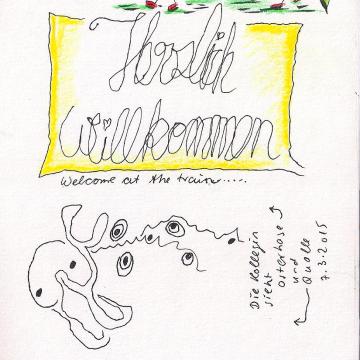 Herzlich
willkommen
Welcome at the train.....
Die Kollegin
sieht
Osterhase
und
Qualle
7.3.2015